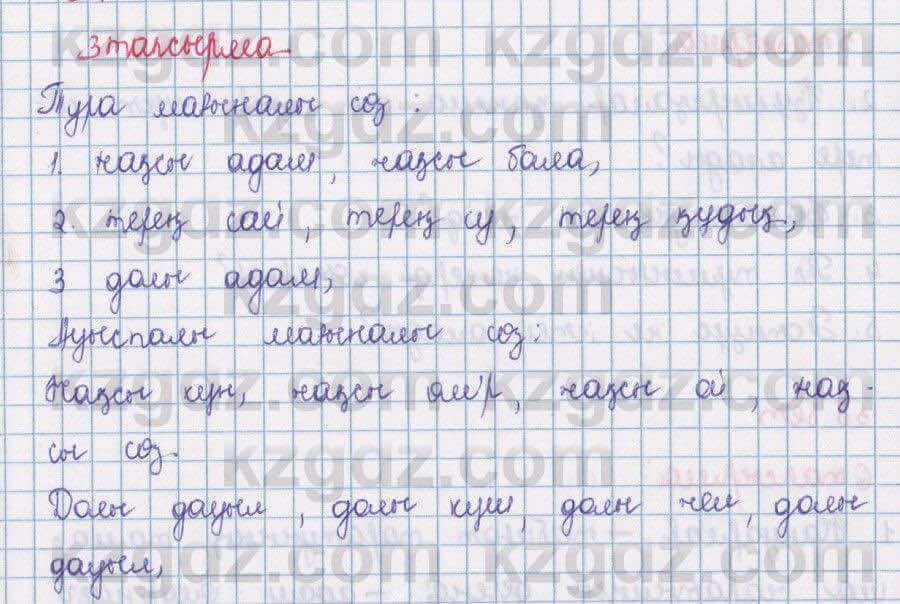 3 тапсырма
Тура мағыналы сөз:
1. жақсы адам, жақсы бала,
2. терең сай, терең су, терең құдық,
3 долы адам,
Ауыспалы мағыналы сөз:
Жақсы күн, жақсы өмір, жақсы ой, жақ-
сы сөз.
Долы дауыл, долы күш, долы жел, долы
дауыл,
kzgdz.com